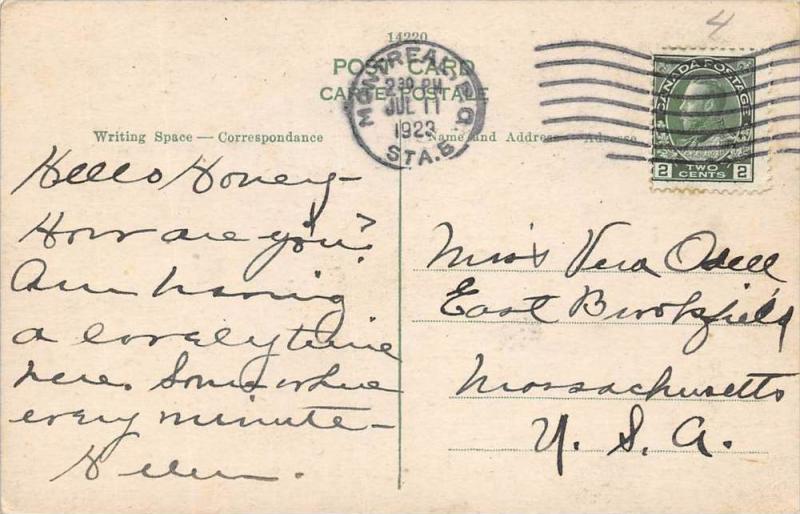 4
14220
POST CARD
CARTE POSTALE
MONTREAL P.Q.
2 30 PM
JUL 11
1923
STA. B
CANADA POSTAGE
2 TWO CENTS 2
Writing Space — Correspondance
Name and Address — Adresse
Hello Honey-
How are you?
Am having
a lovely time
here. Some
every minute—
Helen.
Miss Vera Odell,
East Brookfield
Massachusetts
U. S. A.